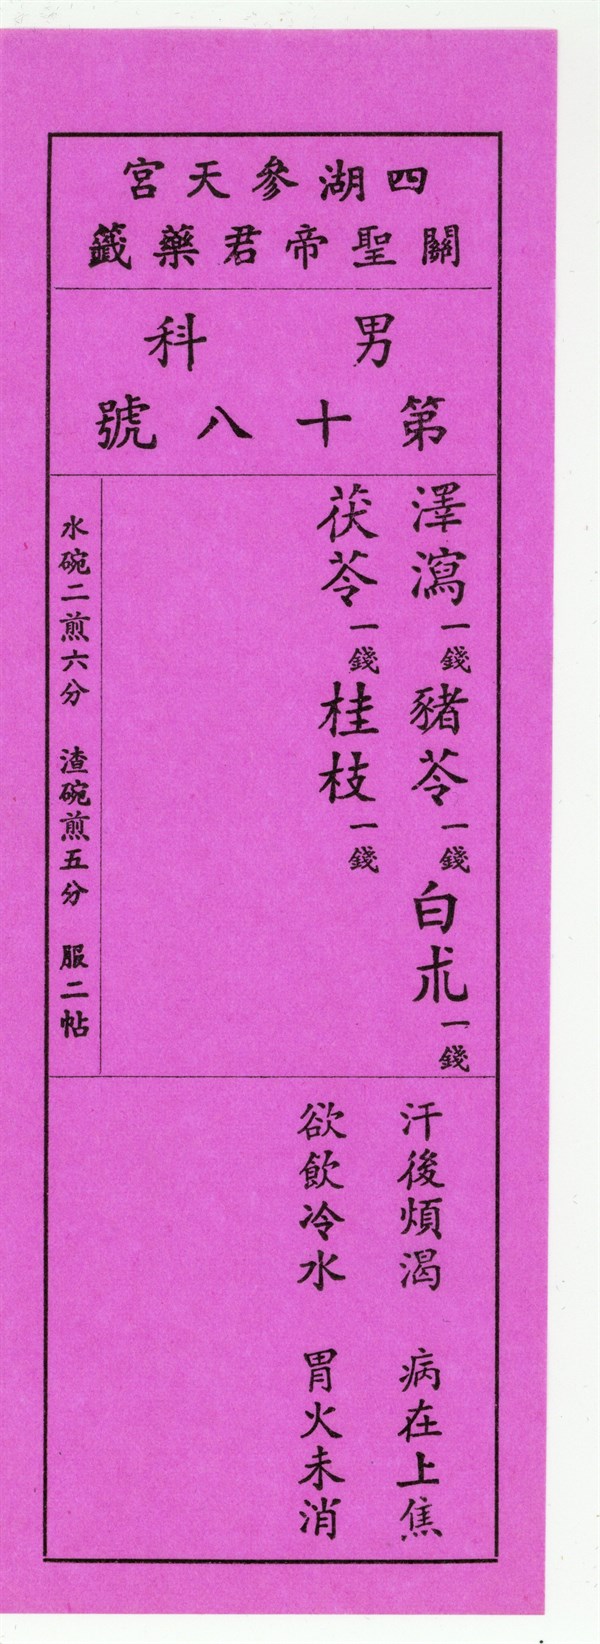 四湖參天宮
關聖帝君藥籤
男科
第十八號
澤瀉一錢豬苓一錢白朮一錢
茯苓一錢桂枝一錢
水碗二煎六分 渣碗煎五分 服二帖
汗後煩渴 病在上焦
欲飲冷水 胃火未消